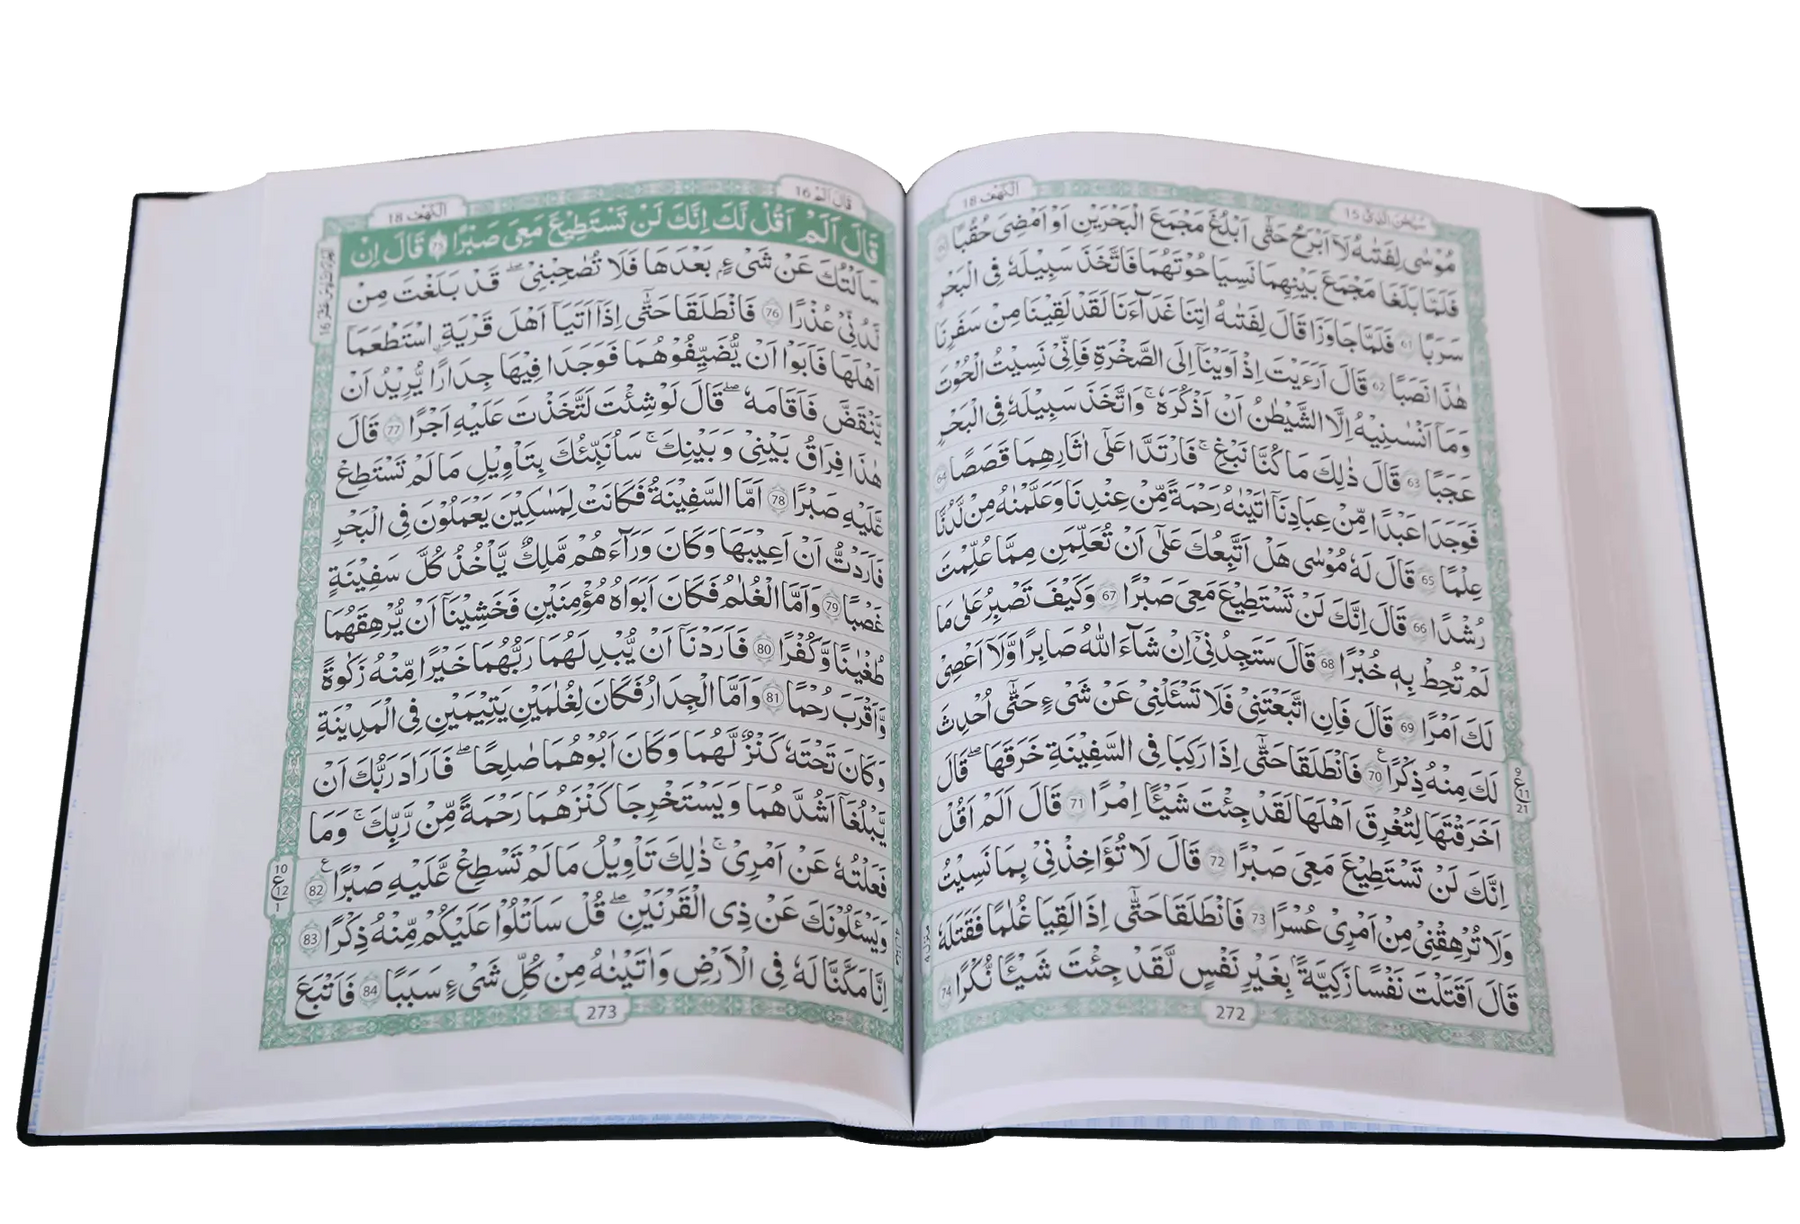 سُبْحٰنَ الَّذِیْۤ 15
اَلْكَهْف 18
مُوْسٰى لِفَتٰىهُ لَاۤ اَبْرَحُ حَتّٰۤى اَبْلُغَ مَجْمَعَ الْبَحْرَیْنِ اَوْ اَمْضِیَ حُقُبًا 60
فَلَمَّا بَلَغَا مَجْمَعَ بَیْنِهِمَا نَسِیَا حُوْتَهُمَا فَاتَّخَذَ سَبِیْلَهٗ فِی الْبَحْرِ
سَرَبًا 61 فَلَمَّا جَاوَزَا قَالَ لِفَتٰىهُ اٰتِنَا غَدَآءَنَا لَقَدْ لَقِیْنَا مِنْ سَفَرِنَا
هٰذَا نَصَبًا 62 قَالَ اَرَءَیْتَ اِذْ اَوَیْنَاۤ اِلَى الصَّخْرَةِ فَاِنِّیْ نَسِیْتُ الْحُوْتَ
وَمَاۤ اَنْسٰىنِیْهُ اِلَّا الشَّیْطٰنُ اَنْ اَذْكُرَهٗ ۚ وَاتَّخَذَ سَبِیْلَهٗ فِی الْبَحْرِ
عَجَبًا 63 قَالَ ذٰلِكَ مَا كُنَّا نَبْغِ ۚ فَارْتَدَّا عَلٰۤى اٰثَارِهِمَا قَصَصًا 64
فَوَجَدَا عَبْدًا مِّنْ عِبَادِنَاۤ اٰتَیْنٰهُ رَحْمَةً مِّنْ عِنْدِنَا وَعَلَّمْنٰهُ مِنْ لَّدُنَّا
عِلْمًا 65 قَالَ لَهٗ مُوْسٰى هَلْ اَتَّبِعُكَ عَلٰۤى اَنْ تُعَلِّمَنِ مِمَّا عُلِّمْتَ
رُشْدًا 66 قَالَ اِنَّكَ لَنْ تَسْتَطِیْعَ مَعِیَ صَبْرًا 67 وَكَیْفَ تَصْبِرُ عَلٰى مَا
لَمْ تُحِطْ بِهٖ خُبْرًا 68 قَالَ سَتَجِدُنِیْۤ اِنْ شَآءَ اللهُ صَابِرًا وَّلَاۤ اَعْصِیْ
لَكَ اَمْرًا 69 قَالَ فَاِنِ اتَّبَعْتَنِیْ فَلَا تَسْـَٔلْنِیْ عَنْ شَیْءٍ حَتّٰۤى اُحْدِثَ
لَكَ مِنْهُ ذِكْرًا 70 فَانْطَلَقَا حَتّٰۤى اِذَا رَكِبَا فِی السَّفِیْنَةِ خَرَقَهَا ؕ قَالَ
اَخَرَقْتَهَا لِتُغْرِقَ اَهْلَهَا لَقَدْ جِئْتَ شَیْـًٔا اِمْرًا 71 قَالَ اَلَمْ اَقُلْ
اِنَّكَ لَنْ تَسْتَطِیْعَ مَعِیَ صَبْرًا 72 قَالَ لَا تُؤَاخِذْنِیْ بِمَا نَسِیْتُ
وَلَا تُرْهِقْنِیْ مِنْ اَمْرِیْ عُسْرًا 73 فَانْطَلَقَا حَتّٰۤى اِذَا لَقِیَا غُلٰمًا فَقَتَلَهٗ
قَالَ اَقَتَلْتَ نَفْسًا زَكِیَّةًۢ بِغَیْرِ نَفْسٍ لَّقَدْ جِئْتَ شَیْـًٔا نُّكْرًا 74
9
ع
11
21
272
قَالَ اَلَمْ 16
اَلْكَهْف 18
قَالَ اَلَمْ اَقُلْ لَّكَ اِنَّكَ لَنْ تَسْتَطِیْعَ مَعِیَ صَبْرًا 75 قَالَ اِنْ
سَاَلْتُكَ عَنْ شَیْءٍۭ بَعْدَهَا فَلَا تُصٰحِبْنِیْ ۖ قَدْ بَلَغْتَ مِنْ
لَّدُنِّیْ عُذْرًا 76 فَانْطَلَقَا حَتّٰۤى اِذَاۤ اَتَیَاۤ اَهْلَ قَرْیَةِ اسْتَطْعَمَاۤ
اَهْلَهَا فَاَبَوْا اَنْ یُّضَیِّفُوْهُمَا فَوَجَدَا فِیْهَا جِدَارًا یُّرِیْدُ اَنْ
یَّنْقَضَّ فَاَقَامَهٗ ؕ قَالَ لَوْ شِئْتَ لَتَّخَذْتَ عَلَیْهِ اَجْرًا 77 قَالَ
هٰذَا فِرَاقُ بَیْنِیْ وَبَیْنِكَ ۚ سَاُنَبِّئُكَ بِتَاْوِیْلِ مَا لَمْ تَسْتَطِعْ
عَّلَیْهِ صَبْرًا 78 اَمَّا السَّفِیْنَةُ فَكَانَتْ لِمَسٰكِیْنَ یَعْمَلُوْنَ فِی الْبَحْرِ
فَاَرَدْتُّ اَنْ اَعِیْبَهَا وَكَانَ وَرَآءَهُمْ مَّلِكٌ یَّاْخُذُ كُلَّ سَفِیْنَةٍ
غَصْبًا 79 وَاَمَّا الْغُلٰمُ فَكَانَ اَبَوٰهُ مُؤْمِنَیْنِ فَخَشِیْنَاۤ اَنْ یُّرْهِقَهُمَا
طُغْیَانًا وَّكُفْرًا 80 فَاَرَدْنَاۤ اَنْ یُّبْدِلَهُمَا رَبُّهُمَا خَیْرًا مِّنْهُ زَكٰوةً
وَّاَقْرَبَ رُحْمًا 81 وَاَمَّا الْجِدَارُ فَكَانَ لِغُلٰمَیْنِ یَتِیْمَیْنِ فِی الْمَدِیْنَةِ
وَكَانَ تَحْتَهٗ كَنْزٌ لَّهُمَا وَكَانَ اَبُوْهُمَا صَالِحًا ۖ فَاَرَادَ رَبُّكَ اَنْ
یَّبْلُغَاۤ اَشُدَّهُمَا وَیَسْتَخْرِجَا كَنْزَهُمَا رَحْمَةً مِّنْ رَّبِّكَ ۚ وَمَا
فَعَلْتُهٗ عَنْ اَمْرِیْ ؕ ذٰلِكَ تَاْوِیْلُ مَا لَمْ تَسْطِعْ عَّلَیْهِ صَبْرًا 82
وَیَسْـَٔلُوْنَكَ عَنْ ذِی الْقَرْنَیْنِ ؕ قُلْ سَاَتْلُوْا عَلَیْكُمْ مِّنْهُ ذِكْرًا 83
اِنَّا مَكَّنَّا لَهٗ فِی الْاَرْضِ وَاٰتَیْنٰهُ مِنْ كُلِّ شَیْءٍ سَبَبًا 84 فَاَتْبَعَ
10
ع
12
1
273